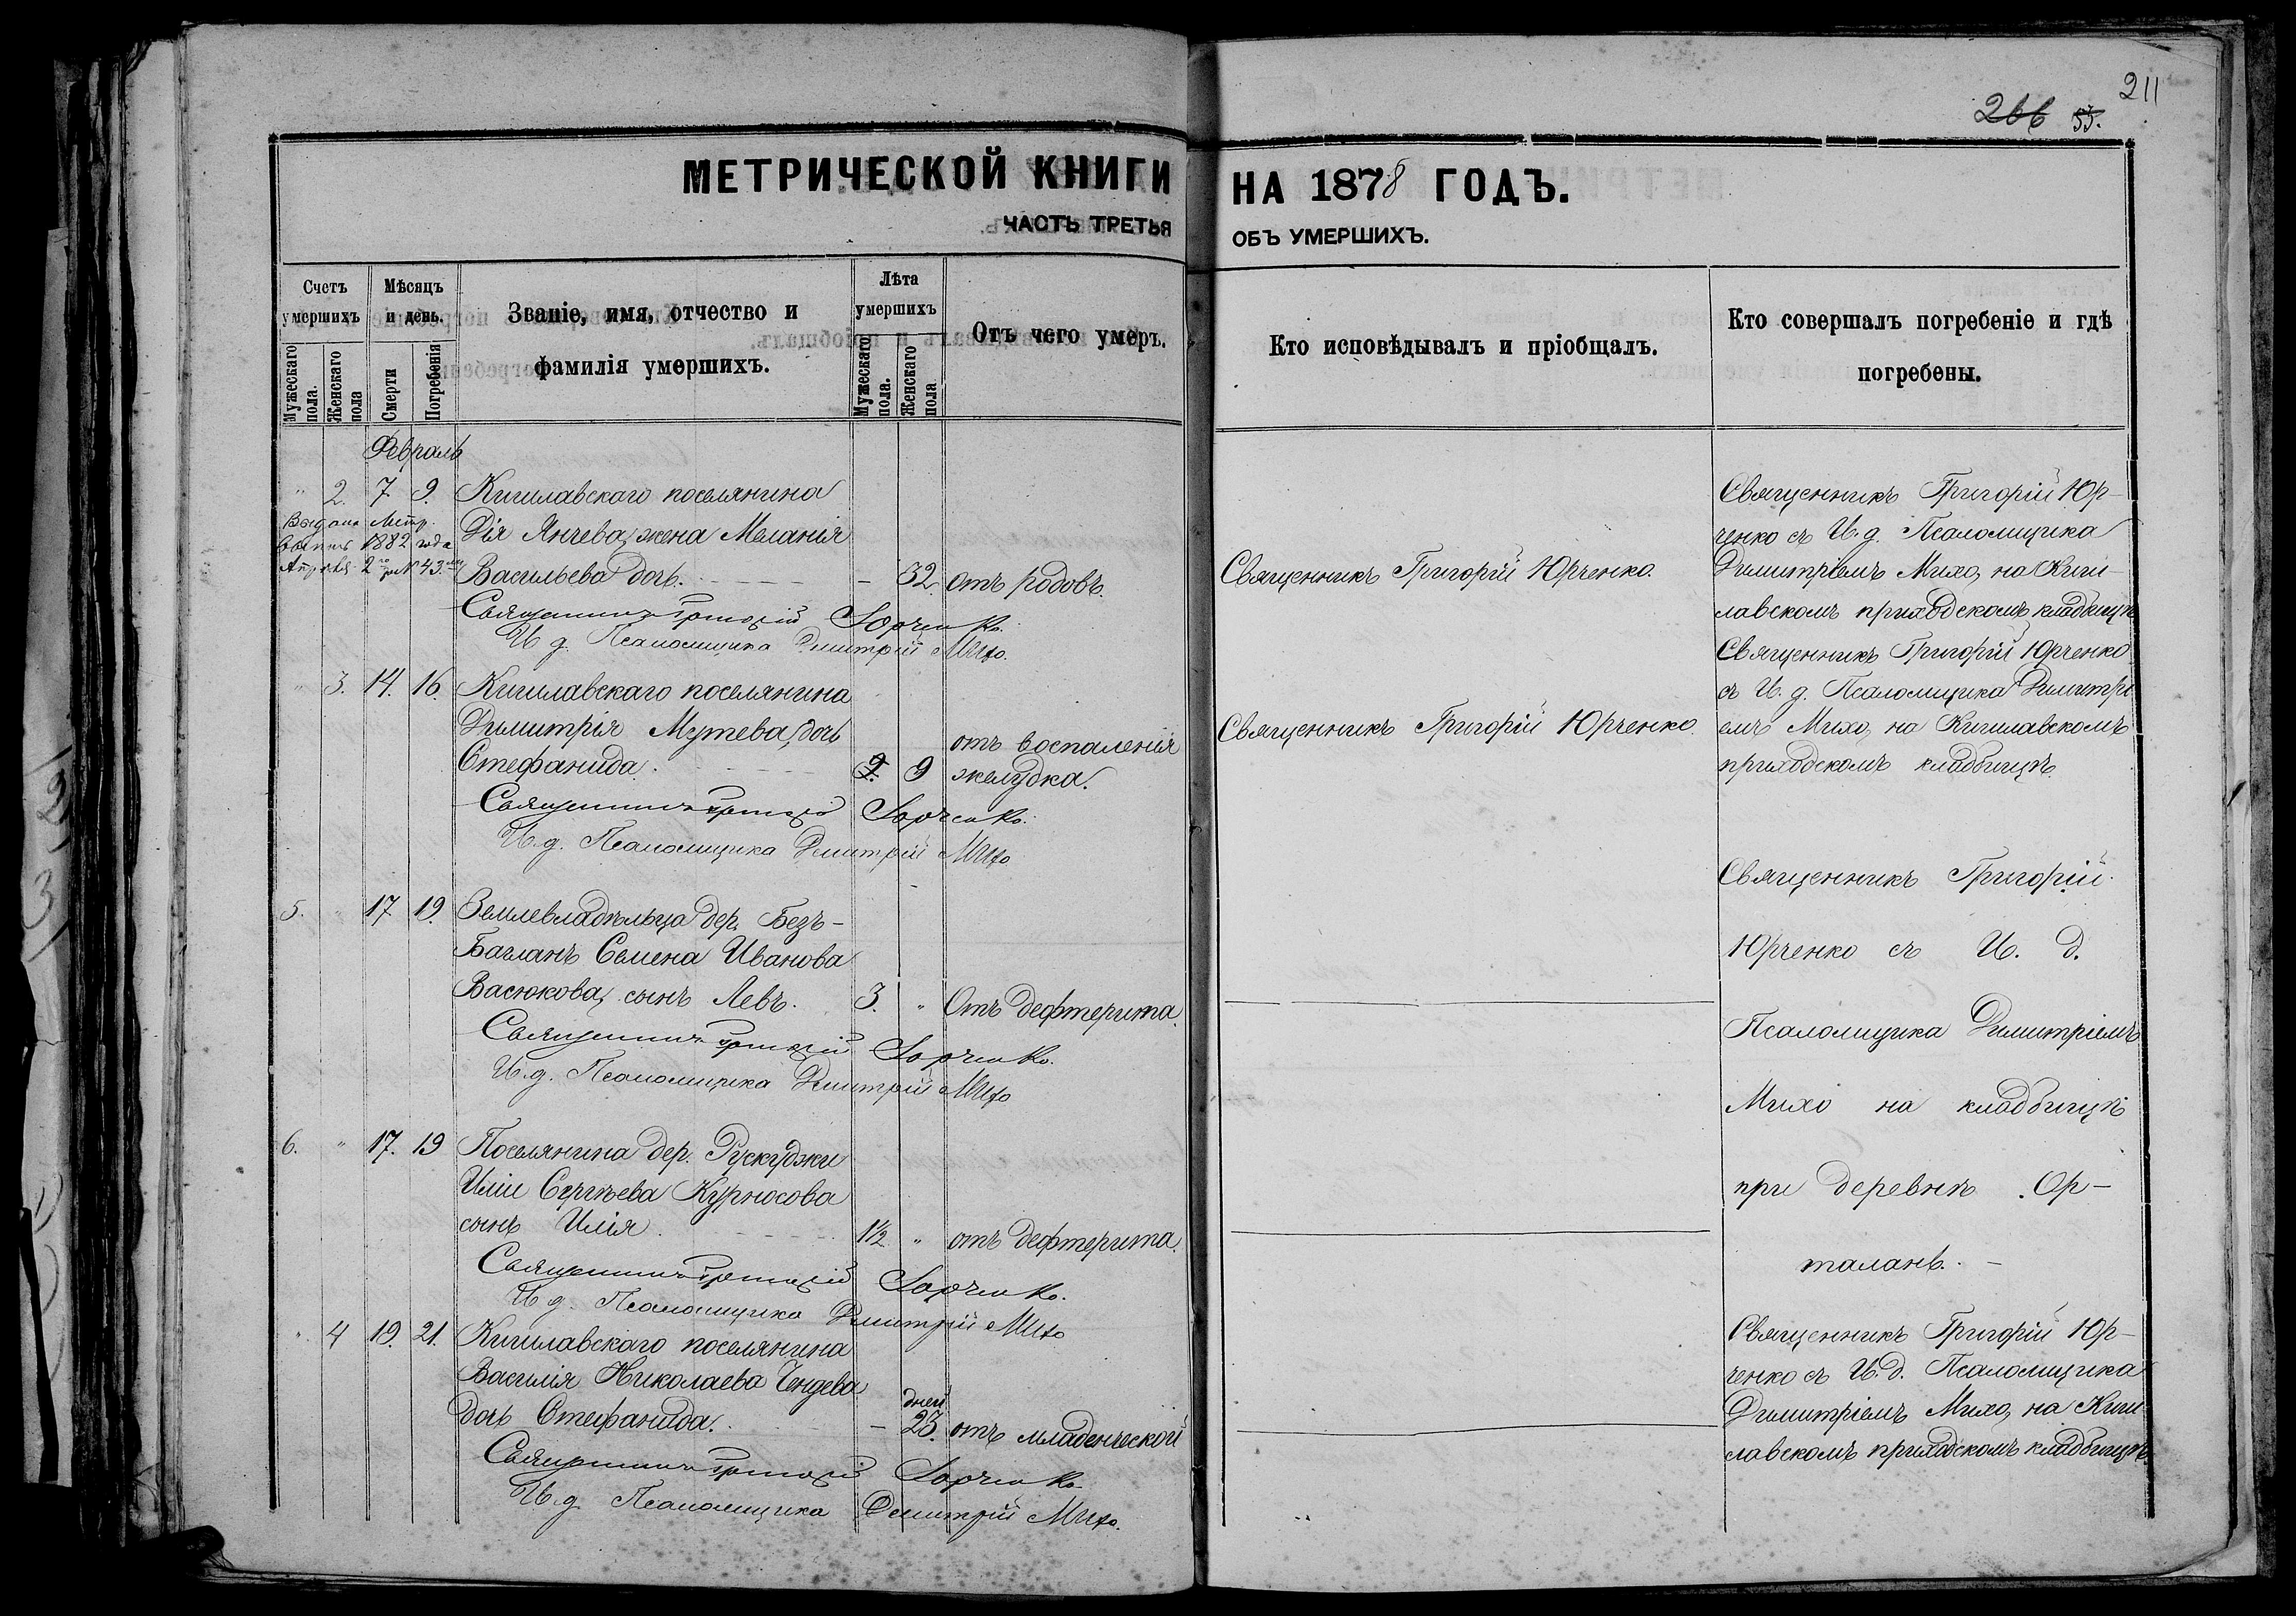 211
266 55.
МЕТРИЧЕСКОЙ КНИГИ НА 1878 ГОДЪ.
ЧАСТЬ ТРЕТЬЯ ОБЪ УМЕРШИХЪ.
Счетъ умершихъ
Мужескаго пола.
Женскаго пола
Мѣсяцъ и день.
Смерти
Погребенія
Званіе, имя, отчество и
фамилія умершихъ.
Лѣта умершихъ
Мужескаго пола.
Женскаго пола
Отъ чего умеръ.
Кто исповѣдывалъ и пріобщалъ.
Кто совершалъ погребеніе и гдѣ
погребены.
Февраль
" 2. 7. 9. Кигилавскаго поселянина
Выдана Метр.
1882 года
Апрѣля 2го № 43.
Дія Янчева, жена Меланія
Васильева дочь. – 32. отъ родовъ.
Священникъ Григорій Юрченко.
И д. Псаломщика Димитрій Михо.
Священникъ Григорій Юрченко.
Священникъ Григорій Юр-
ченко съ И. д. Псаломщика
Димитріемъ Михо, на Киги-
лавскомъ приходскомъ кладбищѣ
" 3. 14. 16. Кигилавскаго поселянина
Димитрія Мутева, дочь
Стефанида. 9. 9 отъ воспаленія
желудка.
Священникъ Григорій Юрченко.
И. д. Псаломщика Димитрій Михо
Священникъ Григорій Юрченко.
Священникъ Григорій Юрченко
съ И. д. Псаломщика Димитрі-
емъ Михо, на Кигилавскомъ
приходскомъ кладбищѣ.
5. " 17 19. Землевладѣльца дер. Безъ-
Багланъ Семена Иванова
Васюкова, сынъ Левъ. 3. " Отъ дефтерита.
Священникъ Григорій Юрченко.
И. д. Псаломщика Димитрій Михо
Священникъ Григорій
Юрченко съ И. д.
Псаломщика Димитріемъ
Михо на кладбищѣ
при деревнѣ Ор-
таланъ. –
6. " 17. 19 Поселянина дер. Рускуджи
Иліи Сергѣева Курносова
сынъ Илія. 1½ " отъ дефтерита.
Священникъ Григорій Юрченко.
И д. Псаломщика Димитрій Михо
" 4 19. 21. Кигилавскаго поселянина
Василія Николаева Чендева
дочь Стефанида. – дней 23. отъ младенческой
Священникъ Григорій Юрченко
И. д. Псаломщика Димитрій Михо.
Священникъ Григорій Юр-
ченко съ И. д. Псаломщика
Димитріемъ Михо, на Киги-
лавскомъ приходскомъ кладбищѣ.